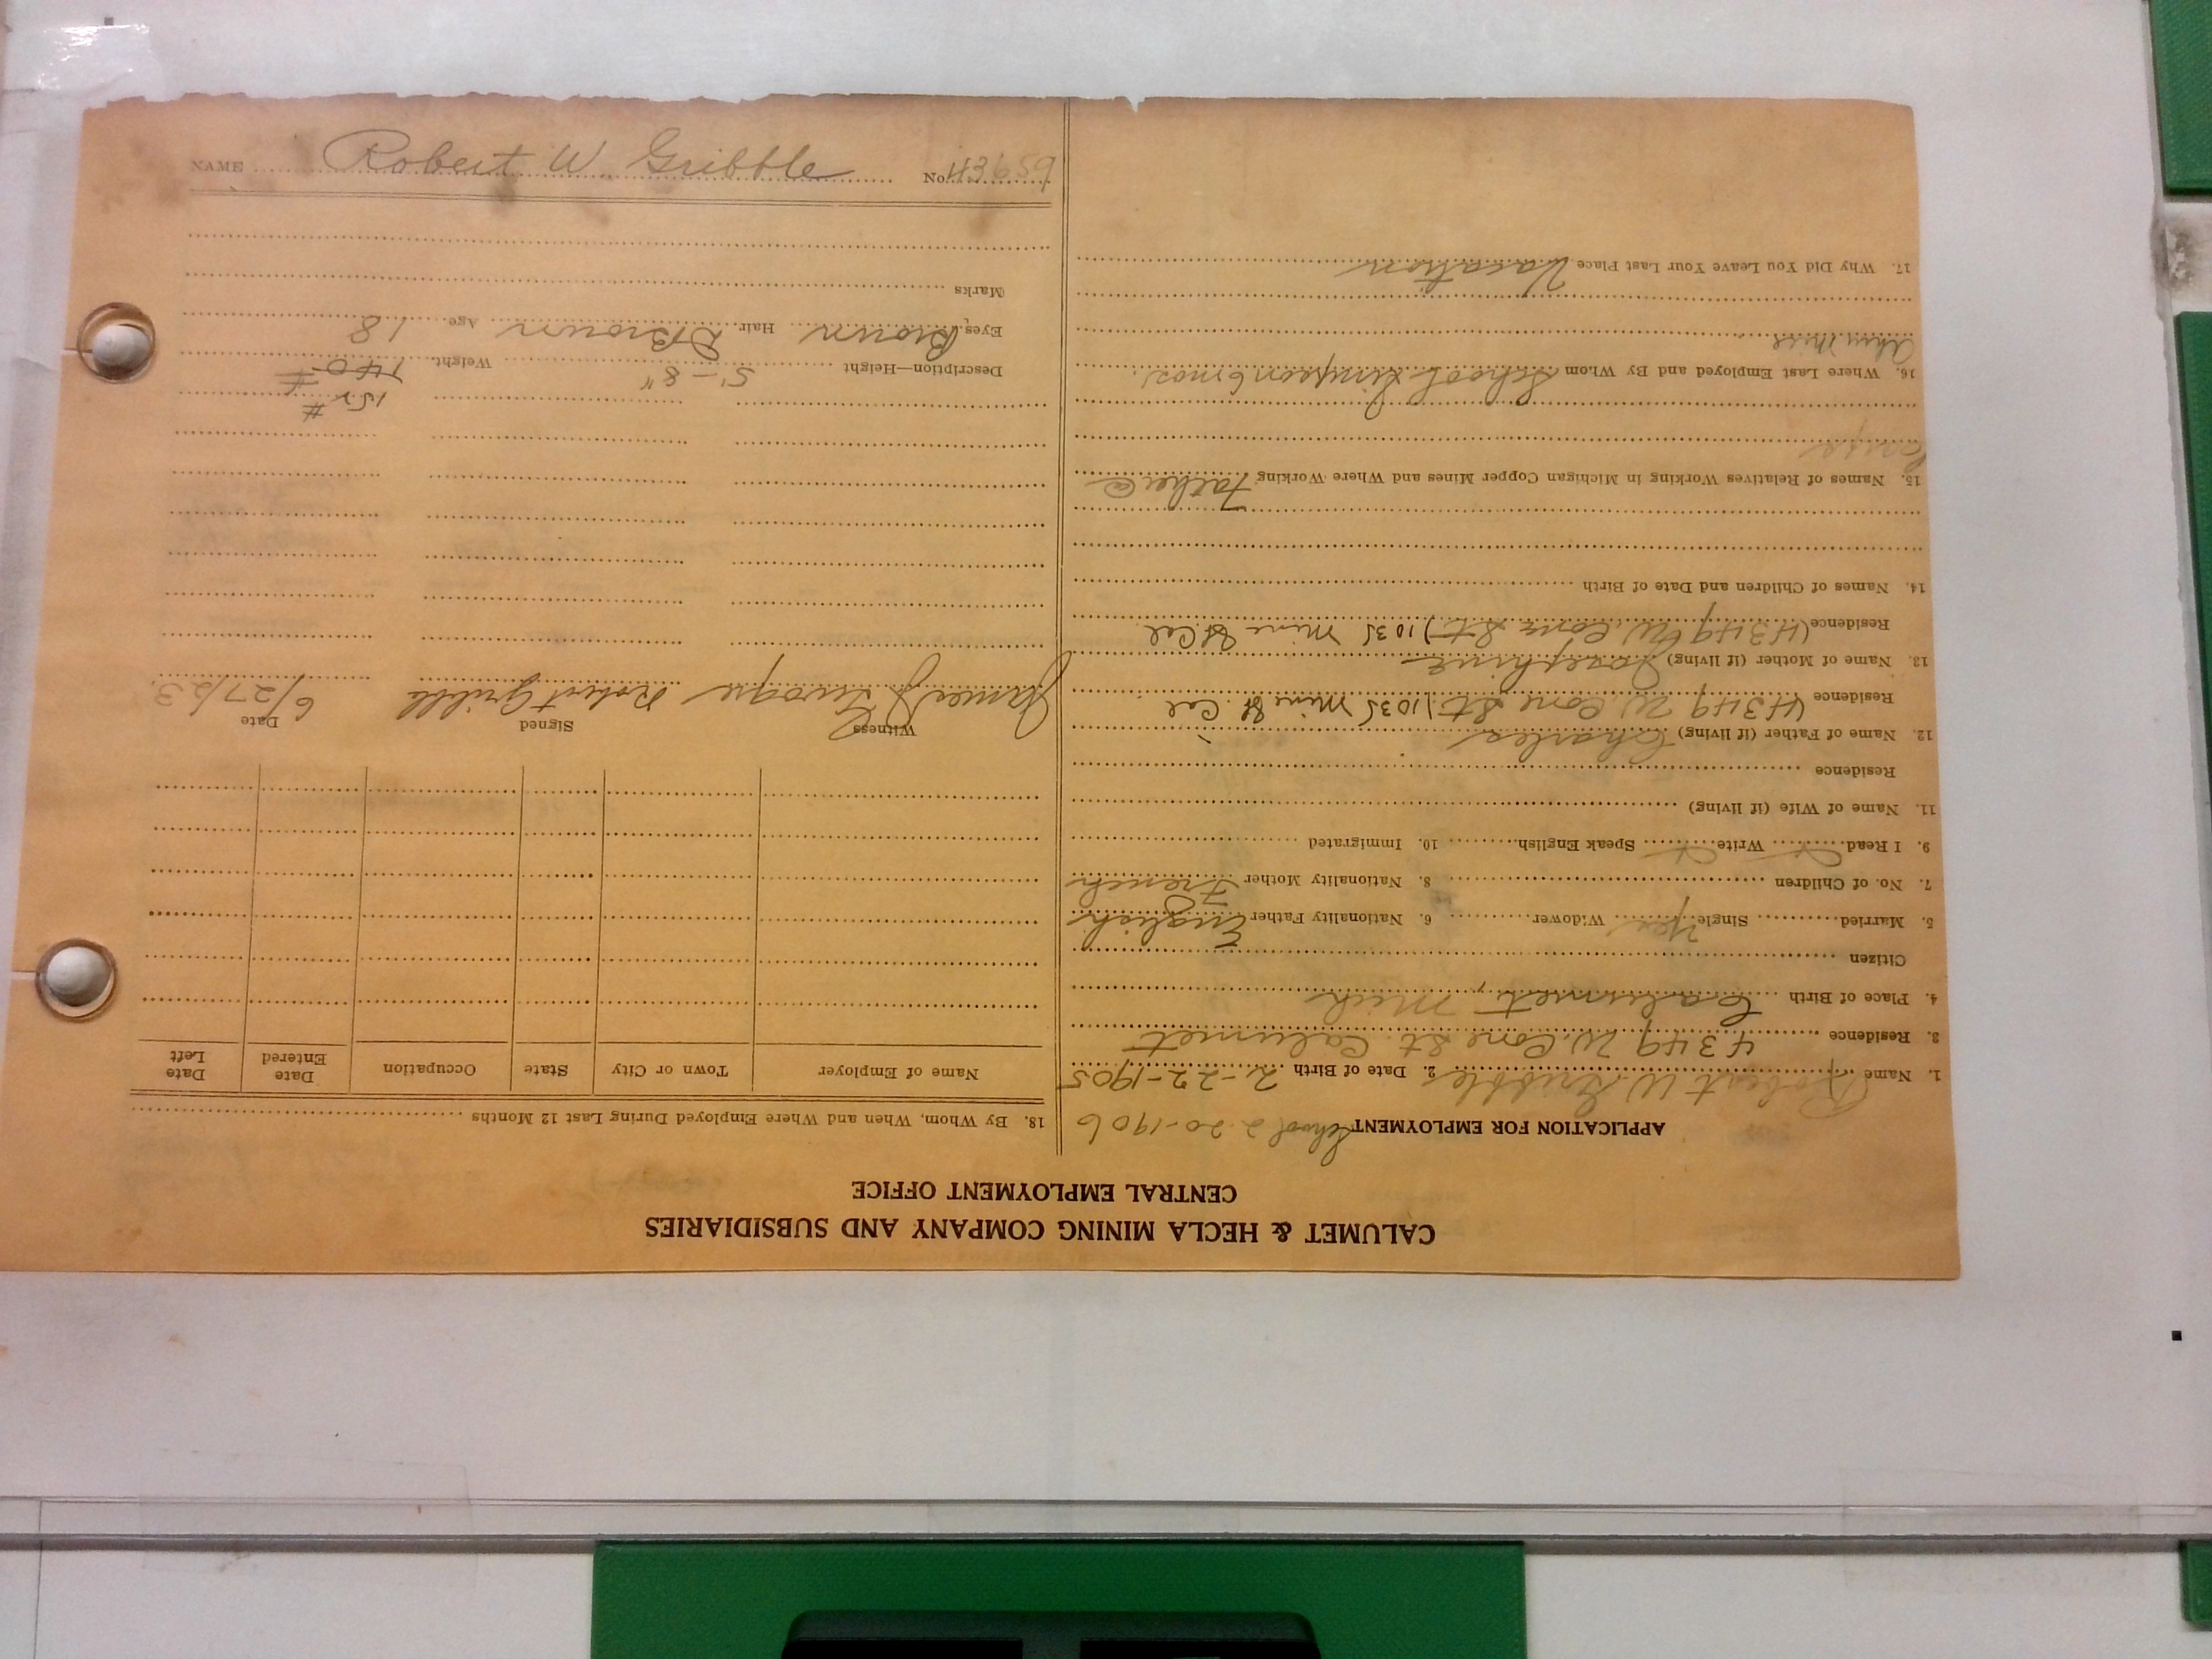 CALUMET & HECLA MINING COMPANY AND SUBSIDIARIES
CENTRAL EMPLOYMENT OFFICE
APPLICATION FOR EMPLOYMENT School 2-20-1906
1. Name Robert W. Gribble 2. Date of Birth 2-22-1905
3. Residence 4349 W. Cone St. Calumet
4. Place of Birth Calumet, Mich
Citizen
5. Married Single yes Widower 6. Nationality Father English
7. No. of Children 8. Nationality Mother French
9. I Read Write Speak English 10. Immigrated
11. Name of Wife (if living)
Residence
12. Name of Father (if living) Charles
Residence 4349 W. Cone St.) 1035 Mine St. Cal
13. Name of Mother (if living) Josephine
Residence (4349 W. Cone St.) 1035 Mine St Cal
14. Names of Children and Date of Birth
15. Names of Relatives Working in Michigan Copper Mines and Where Working Father @
16. Where Last Employed and By Whom School 6 mos.
17. Why Did You Leave Your Last Place Vacation
18. By Whom, When and Where Employed During Last 12 Months
Name of Employer Town or City State Occupation Date Entered Date Left
Witness Signed Date
James Robert Gribble 6/27/23.
152 #
Description—Height 5'-8" Weight 140 #
Eyes Brown Hair D Brown Age 18
Marks
NAME Robert W. Gribble No. 43659